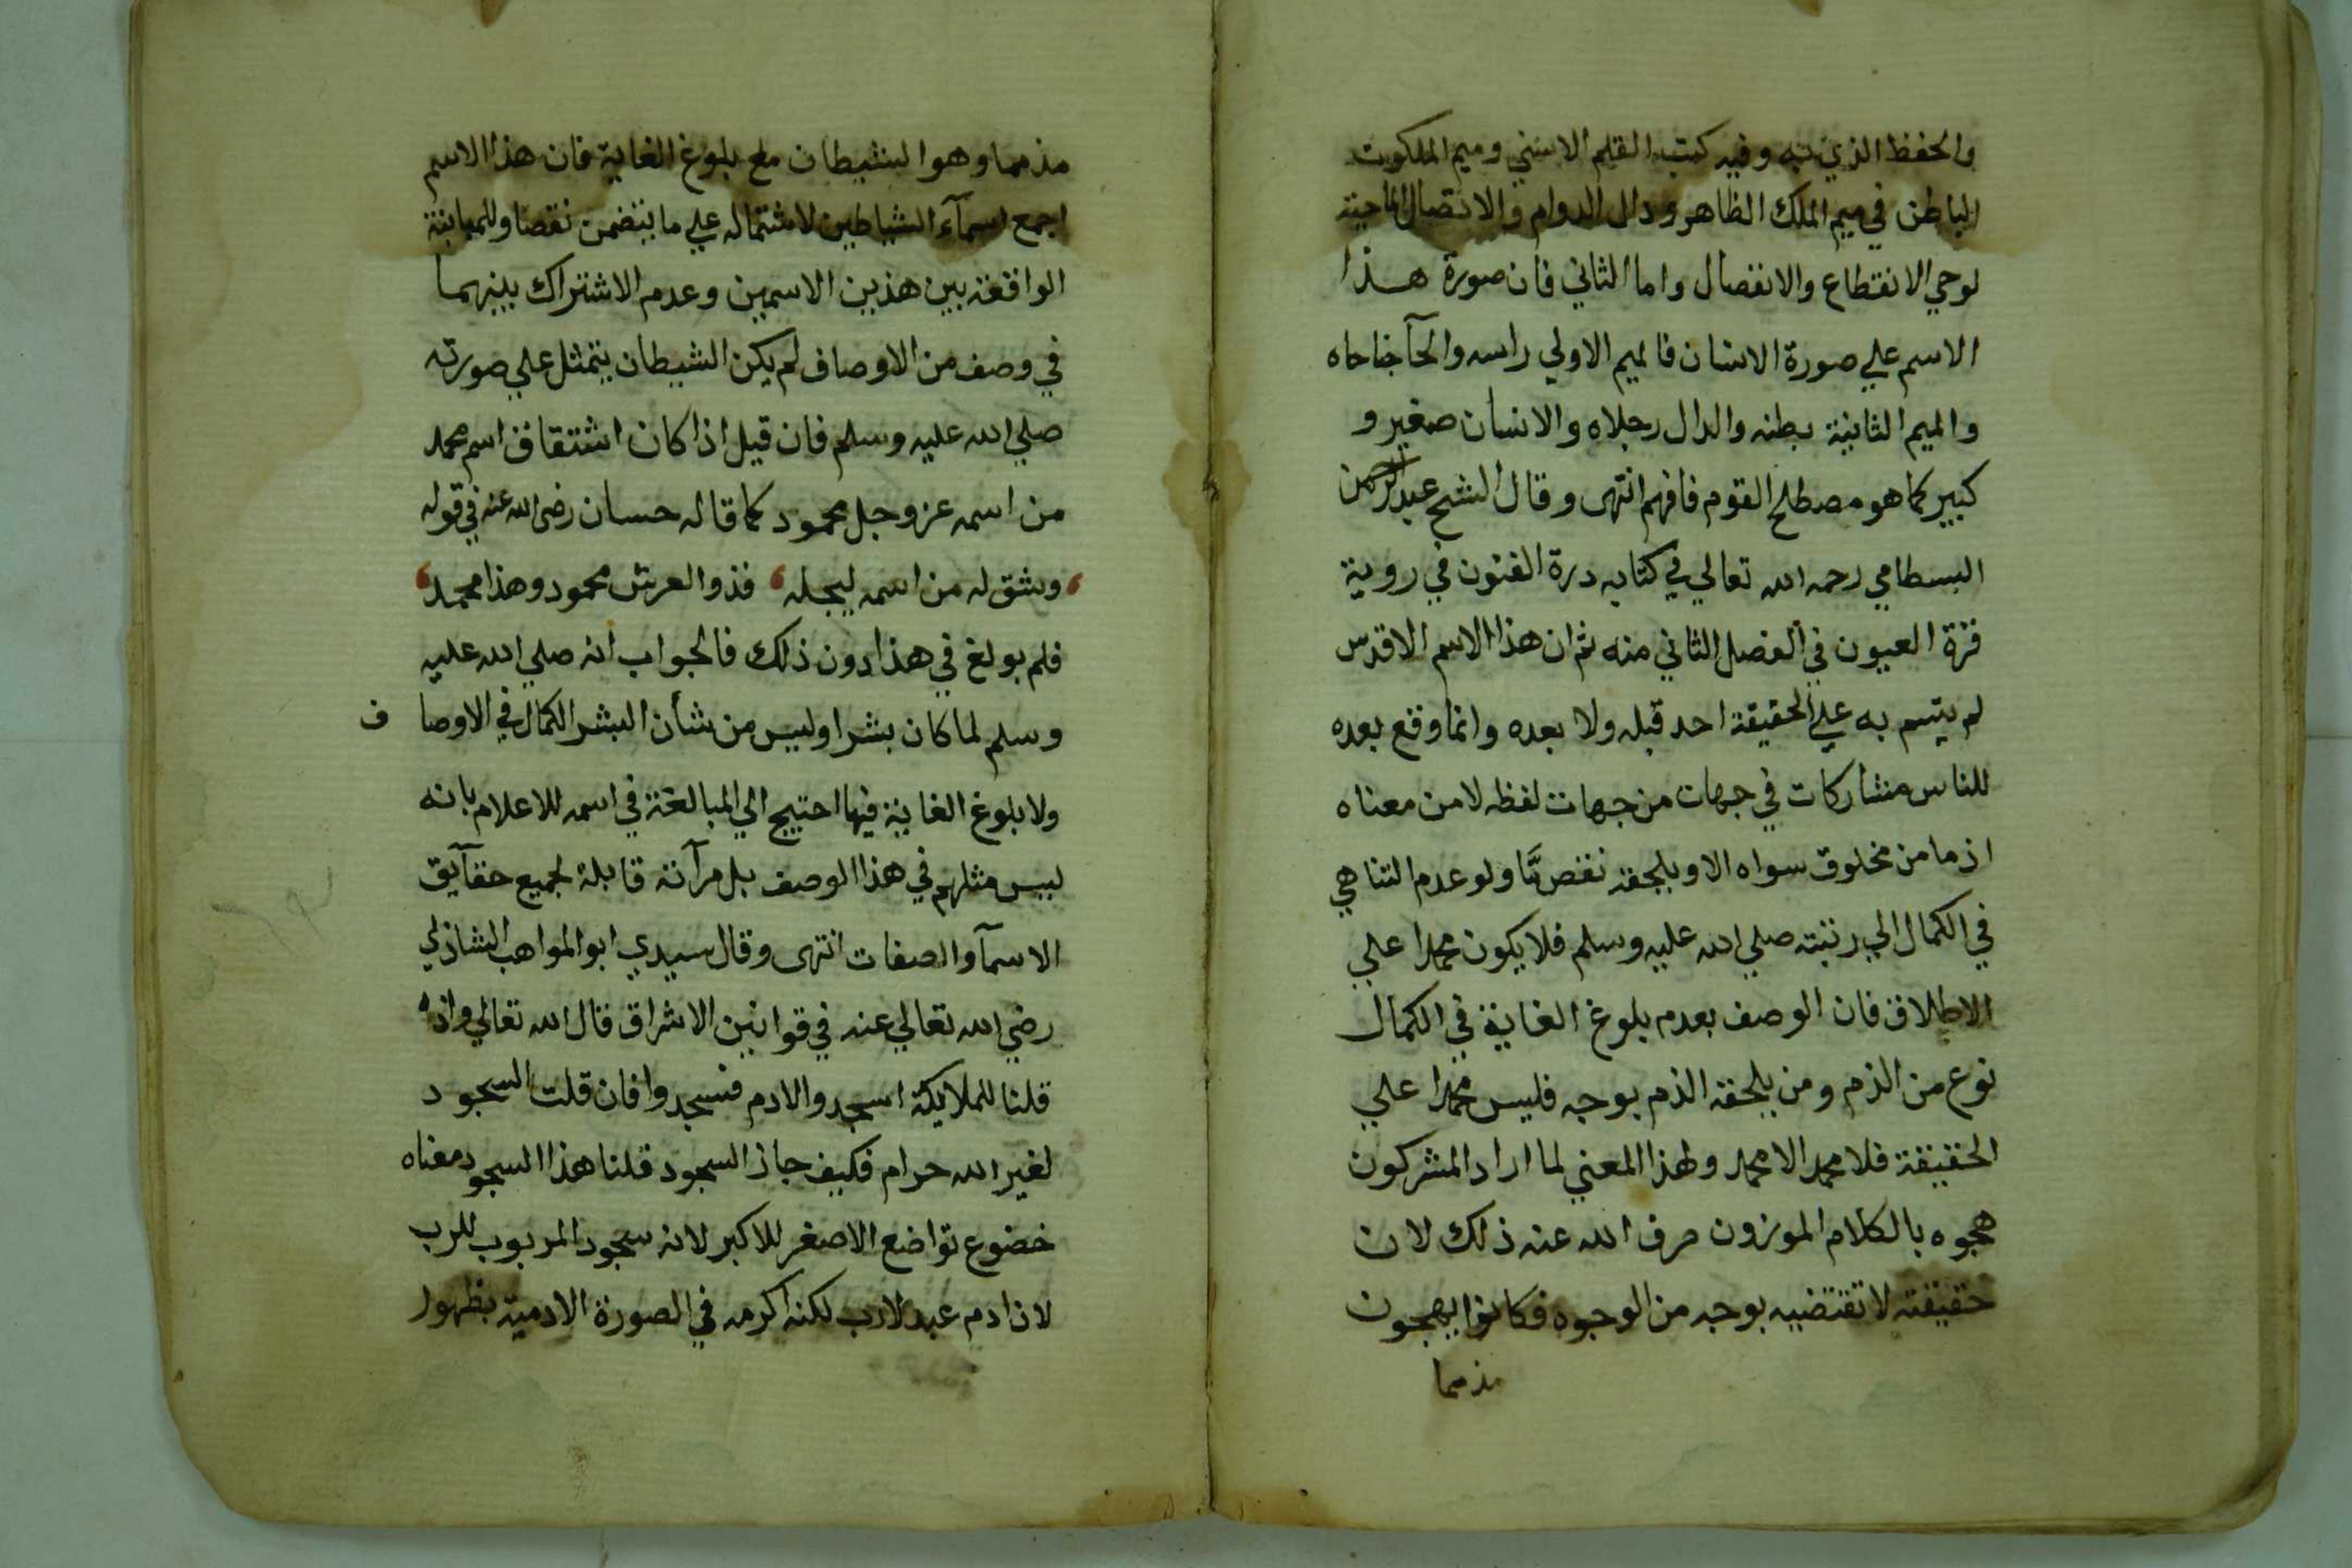 والحفظ الذي به وفيه كتب القلم الاسني وميم الملكوت
الباطن في ميم الملك الظاهر ودال الدوام والاتصال الماحية
لوحي الانقطاع والانفصال واما الثاني فان صورة هذا
الاسم علي صورة الانسان فالميم الاولي راسه والحآ جناحاه
والميم الثانية بطنه والدال رجلاه والانسان صغير و
كبير كما هو مصطلح القوم فافهم انتهى وقال الشيخ عبد الرحمن
البسطامي رحمه الله تعالي في كتابه درة الفنون في روية
قرة العيون في الفصل الثاني منه ثم ان هذا الاسم الاقدس
لم يتسم به علي الحقيقة احد قبله ولا بعده وانما وقع بعده
للناس مشاركات في جهات من جهات لفظه لا من معناه
اذ ما من مخلوق سواه الا ويلحقه نقص مّا ولو عدم التناهي
في الكمال الي رتبته صلي الله عليه وسلم فلا يكون محمدا علي
الاطلاق فان الوصف بعدم بلوغ الغاية في الكمال
نوع من الذم ومن يلحقه الذم بوجه فليس محمدا علي
الحقيقة فلا محمد الا محمد ولهذا المعني لما اراد المشركون
هجوه بالكلام الموزون صرف الله عنه ذلك لان
حقيقته لا تقتضيه بوجه من الوجوه فكانوا يهجون
مذمما
مذمما وهو الشيطان مع بلوغ الغاية فان هذا الاسم
اجمع اسمآء الشياطين لاشتماله علي ما يتضمن نقصا وللمباينة
الواقعة بين هذين الاسمين وعدم الاشتراك بينهما
في وصف من الاوصاف لم يكن الشيطان يتمثل علي صورته
صلي الله عليه وسلم فان قيل اذا كان اشتقاق اسم محمد
من اسمه عز وجل محمود كما قاله حسان رضى الله عنه في قوله
وشق له من اسمه ليجله ، فذو العرش محمود وهذا محمد
فلم بولغ في هذا دون ذلك فالجواب انه صلي الله عليه
وسلم لما كان بشرا وليس من شأن البشر الكمال في الاوصا ف
ولا بلوغ الغاية فيها احتيج الي المبالغة في اسمه للاعلام بانه
ليس مثلهم في هذا الوصف بل مرآته قابلة لجميع حقآيق
الاسمآ والصفات انتهى وقال سيدي ابو المواهب الشاذلي
رضي الله تعالي عنه في قوانين الاشراق قال الله تعالي واذ
قلنا للملايكة اسجدوا لادم فسجدوا فان قلت السجود
لغير الله حرام فكيف جاز السجود قلنا هذا السجود معناه
خضوع تواضع الاصغر للاكبر لانه سجود المربوب للرب
لان ادم عبد لا رب لكنه اكرمه في الصورة الادمية بظهور